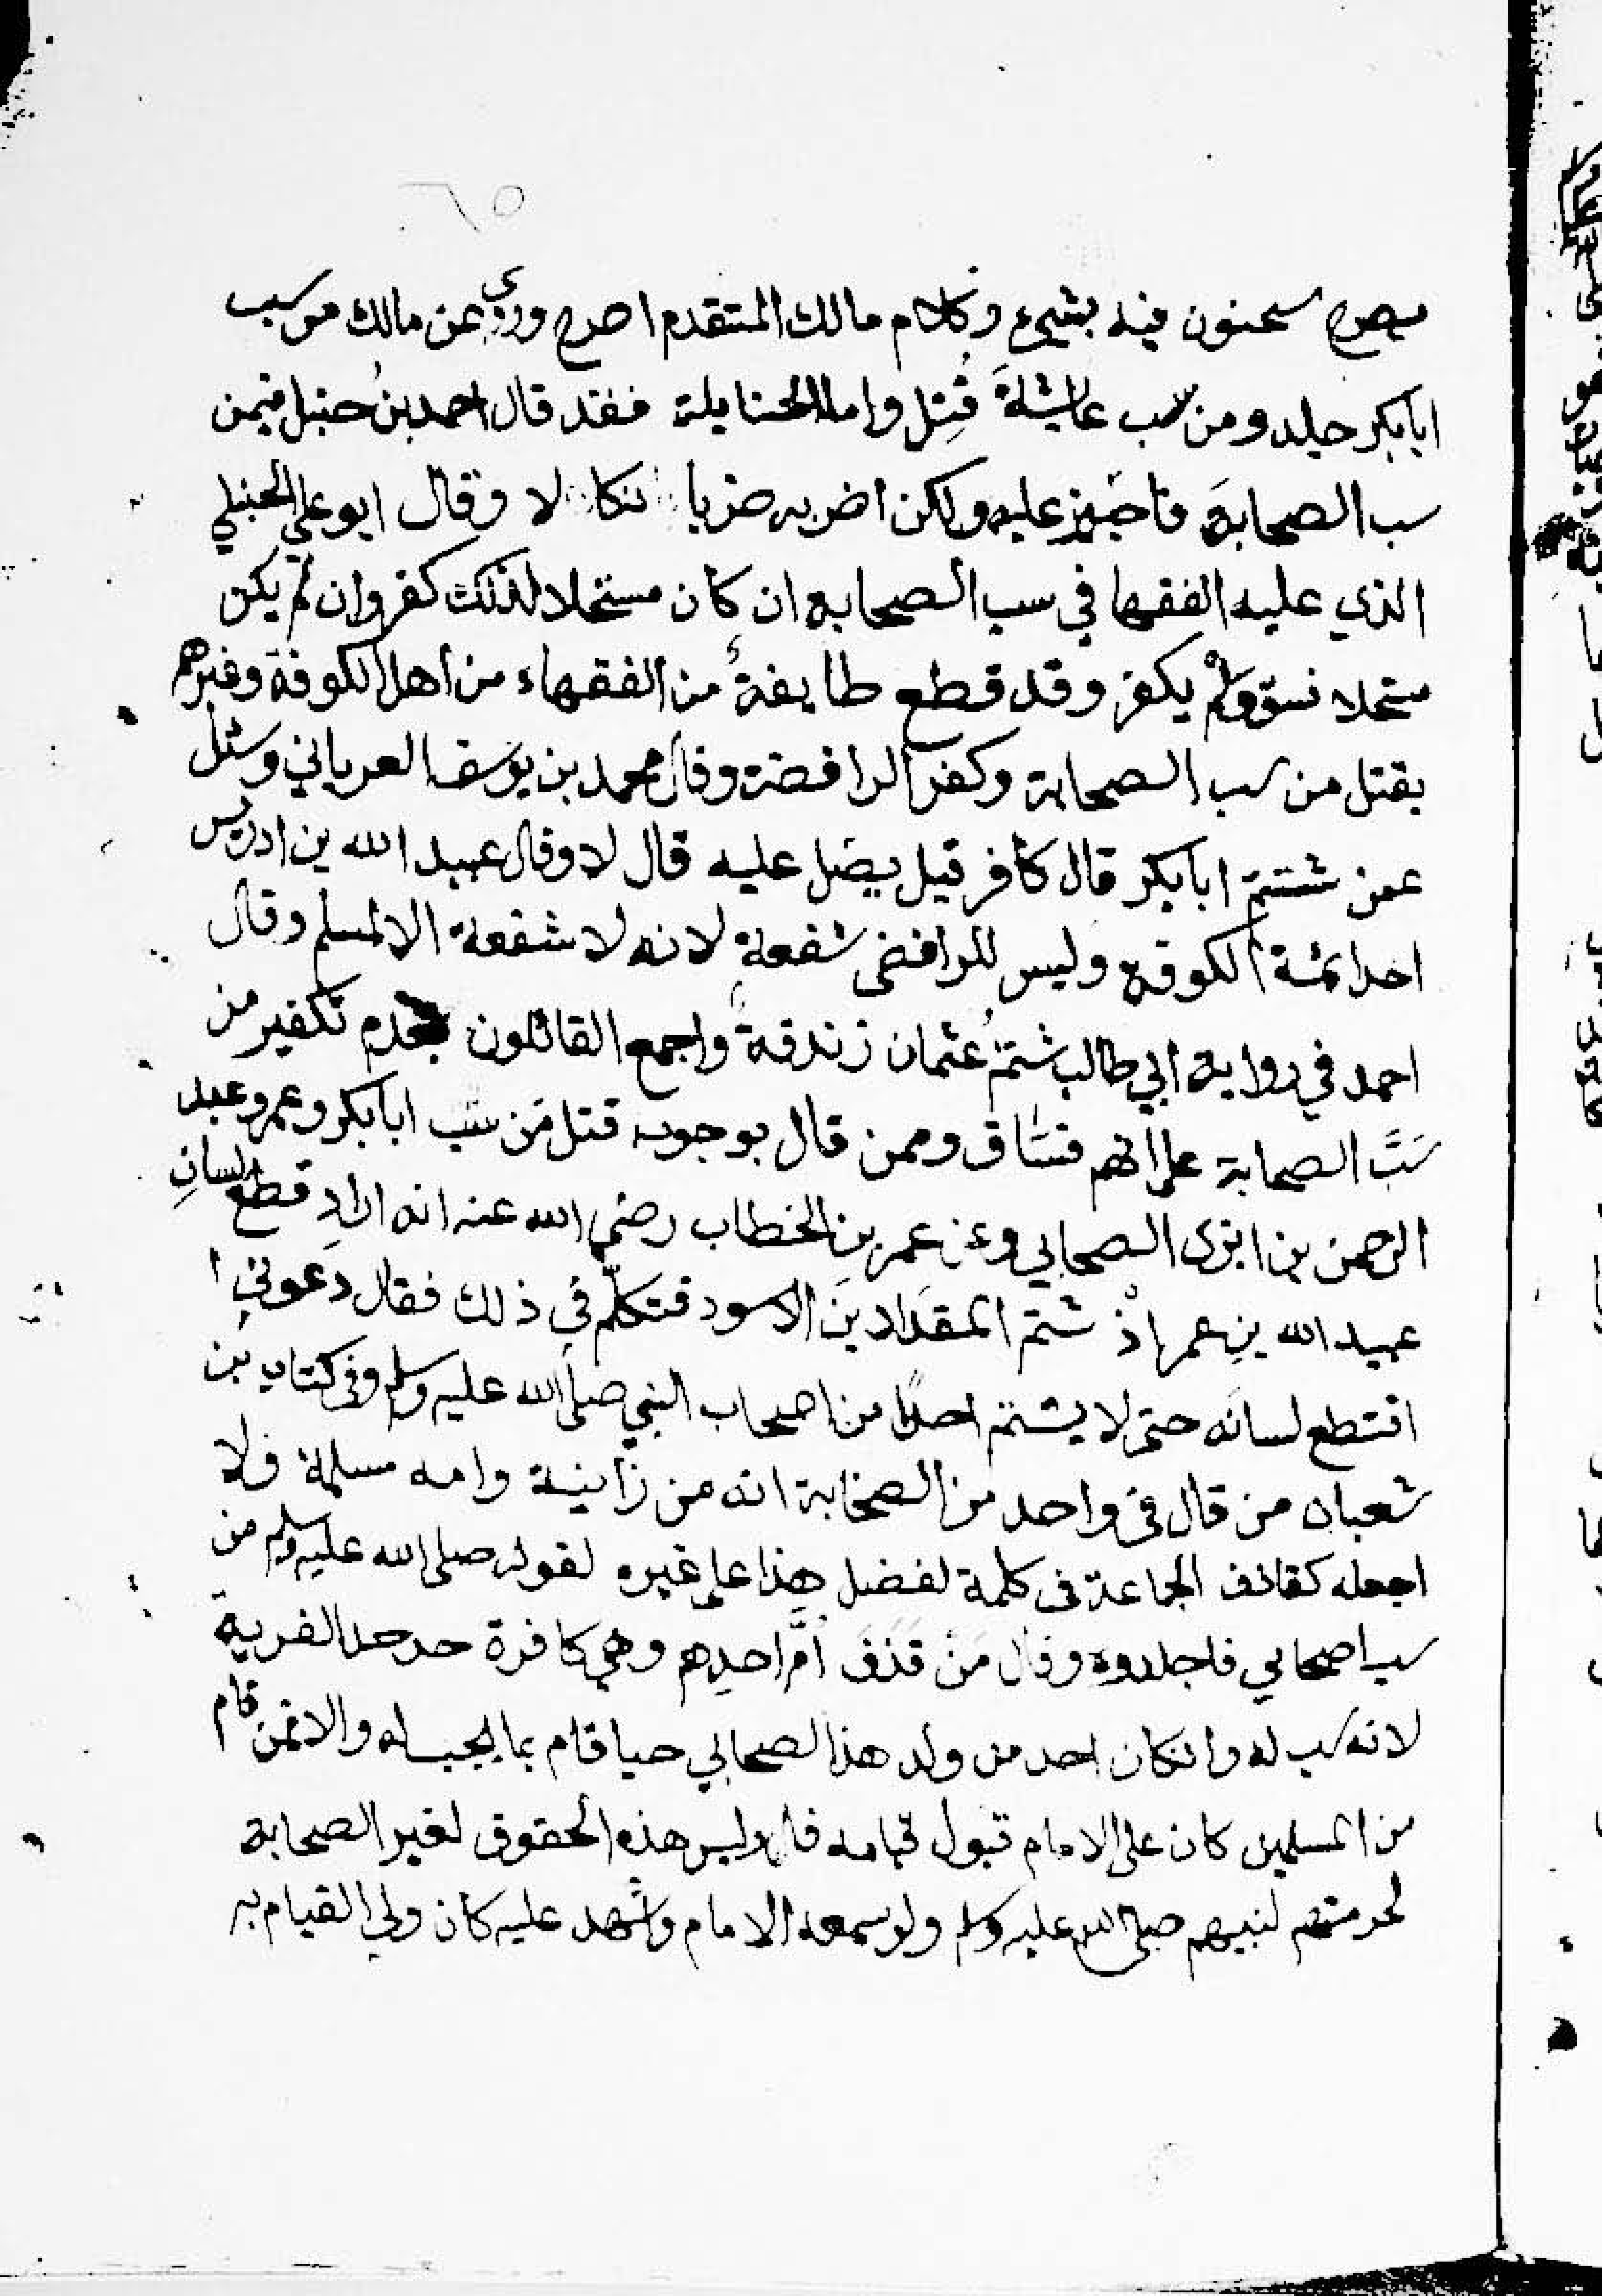 ٦٥
يصرح سحنون فيه بشيء وكلام مالك المتقدم اصرح وروي عن مالك من سب
ابابكر جلد ومن سب عائشة قُتِل واما الحنابلة فقد قال احمد بن حنبل فيمن
سب الصحابة عليه ولكن اضربه ضربا نكالا وقال ابو علي الحنبلي
الذي عليه الفقها في سب الصحابه ان كان مستحلا لذلك كفر وان لم يكن
مستحلا فسق ولم يكفر وقد قطع طايفةٌ من الفقهاء من اهل الكوفة وغيرهم
بقتل من سب الصحابة وكفر الرافضة وقال محمد بن يوسف العرياني وسئل
عمن شتم ابابكر قال كافر قيل يصل عليه قال لا وقال عبيد الله بن ادريس
احد ائمة الكوفه وليس للرافضى شفعة لانه لا شفعة الا لمسلم وقال
احمد في رواية ابي طالب شتمُ عثمان زندقةً واجمع القائلون بعدم تكفير من
سَبَّ الصحابة على انهم فسّاق وممن قال بوجوب قتل مَن سَب ابابكر وعمر وعبد
الرحمن بن ابزى الصحابي وعن عمر بن الخطاب رضي الله عنه انه اراد قطع لسانِ
عبيد الله بن عمر اذْ شتم المقدَاد بنَ الاسود فتكلّم في ذلك فقال دعوني ا
اقتطع لسانَه حتى لا يشتم احدًا من اصحاب النبي صلى الله عليه وسلم وفى كتاب بن
شعبان من قال فى واحد من الصحابة انه من زانية وامه مسلمة ولا
اجعله كقاذف الجماعة فى كلمة لفضل هذا على غيره لقوله صلى الله عليه وسلم من
سب اصحابي فاجلدوه وقال مَنْ قَذَفَ اُمَّ احدِهم وهي كافرة حد حد الفرية
لانه سب له وان كان احد من ولد هذا الصحابي حيا قام بما يجب له والا فمن قام
من المسلمين كان على الامام قبول قيامه قال وليس هذه الحقوق لغير الصحابة
لحرمتهم لنبيهم صلى الله عليه وسلم ولو سمعه الامام واشهد عليه كان ولي القيام به